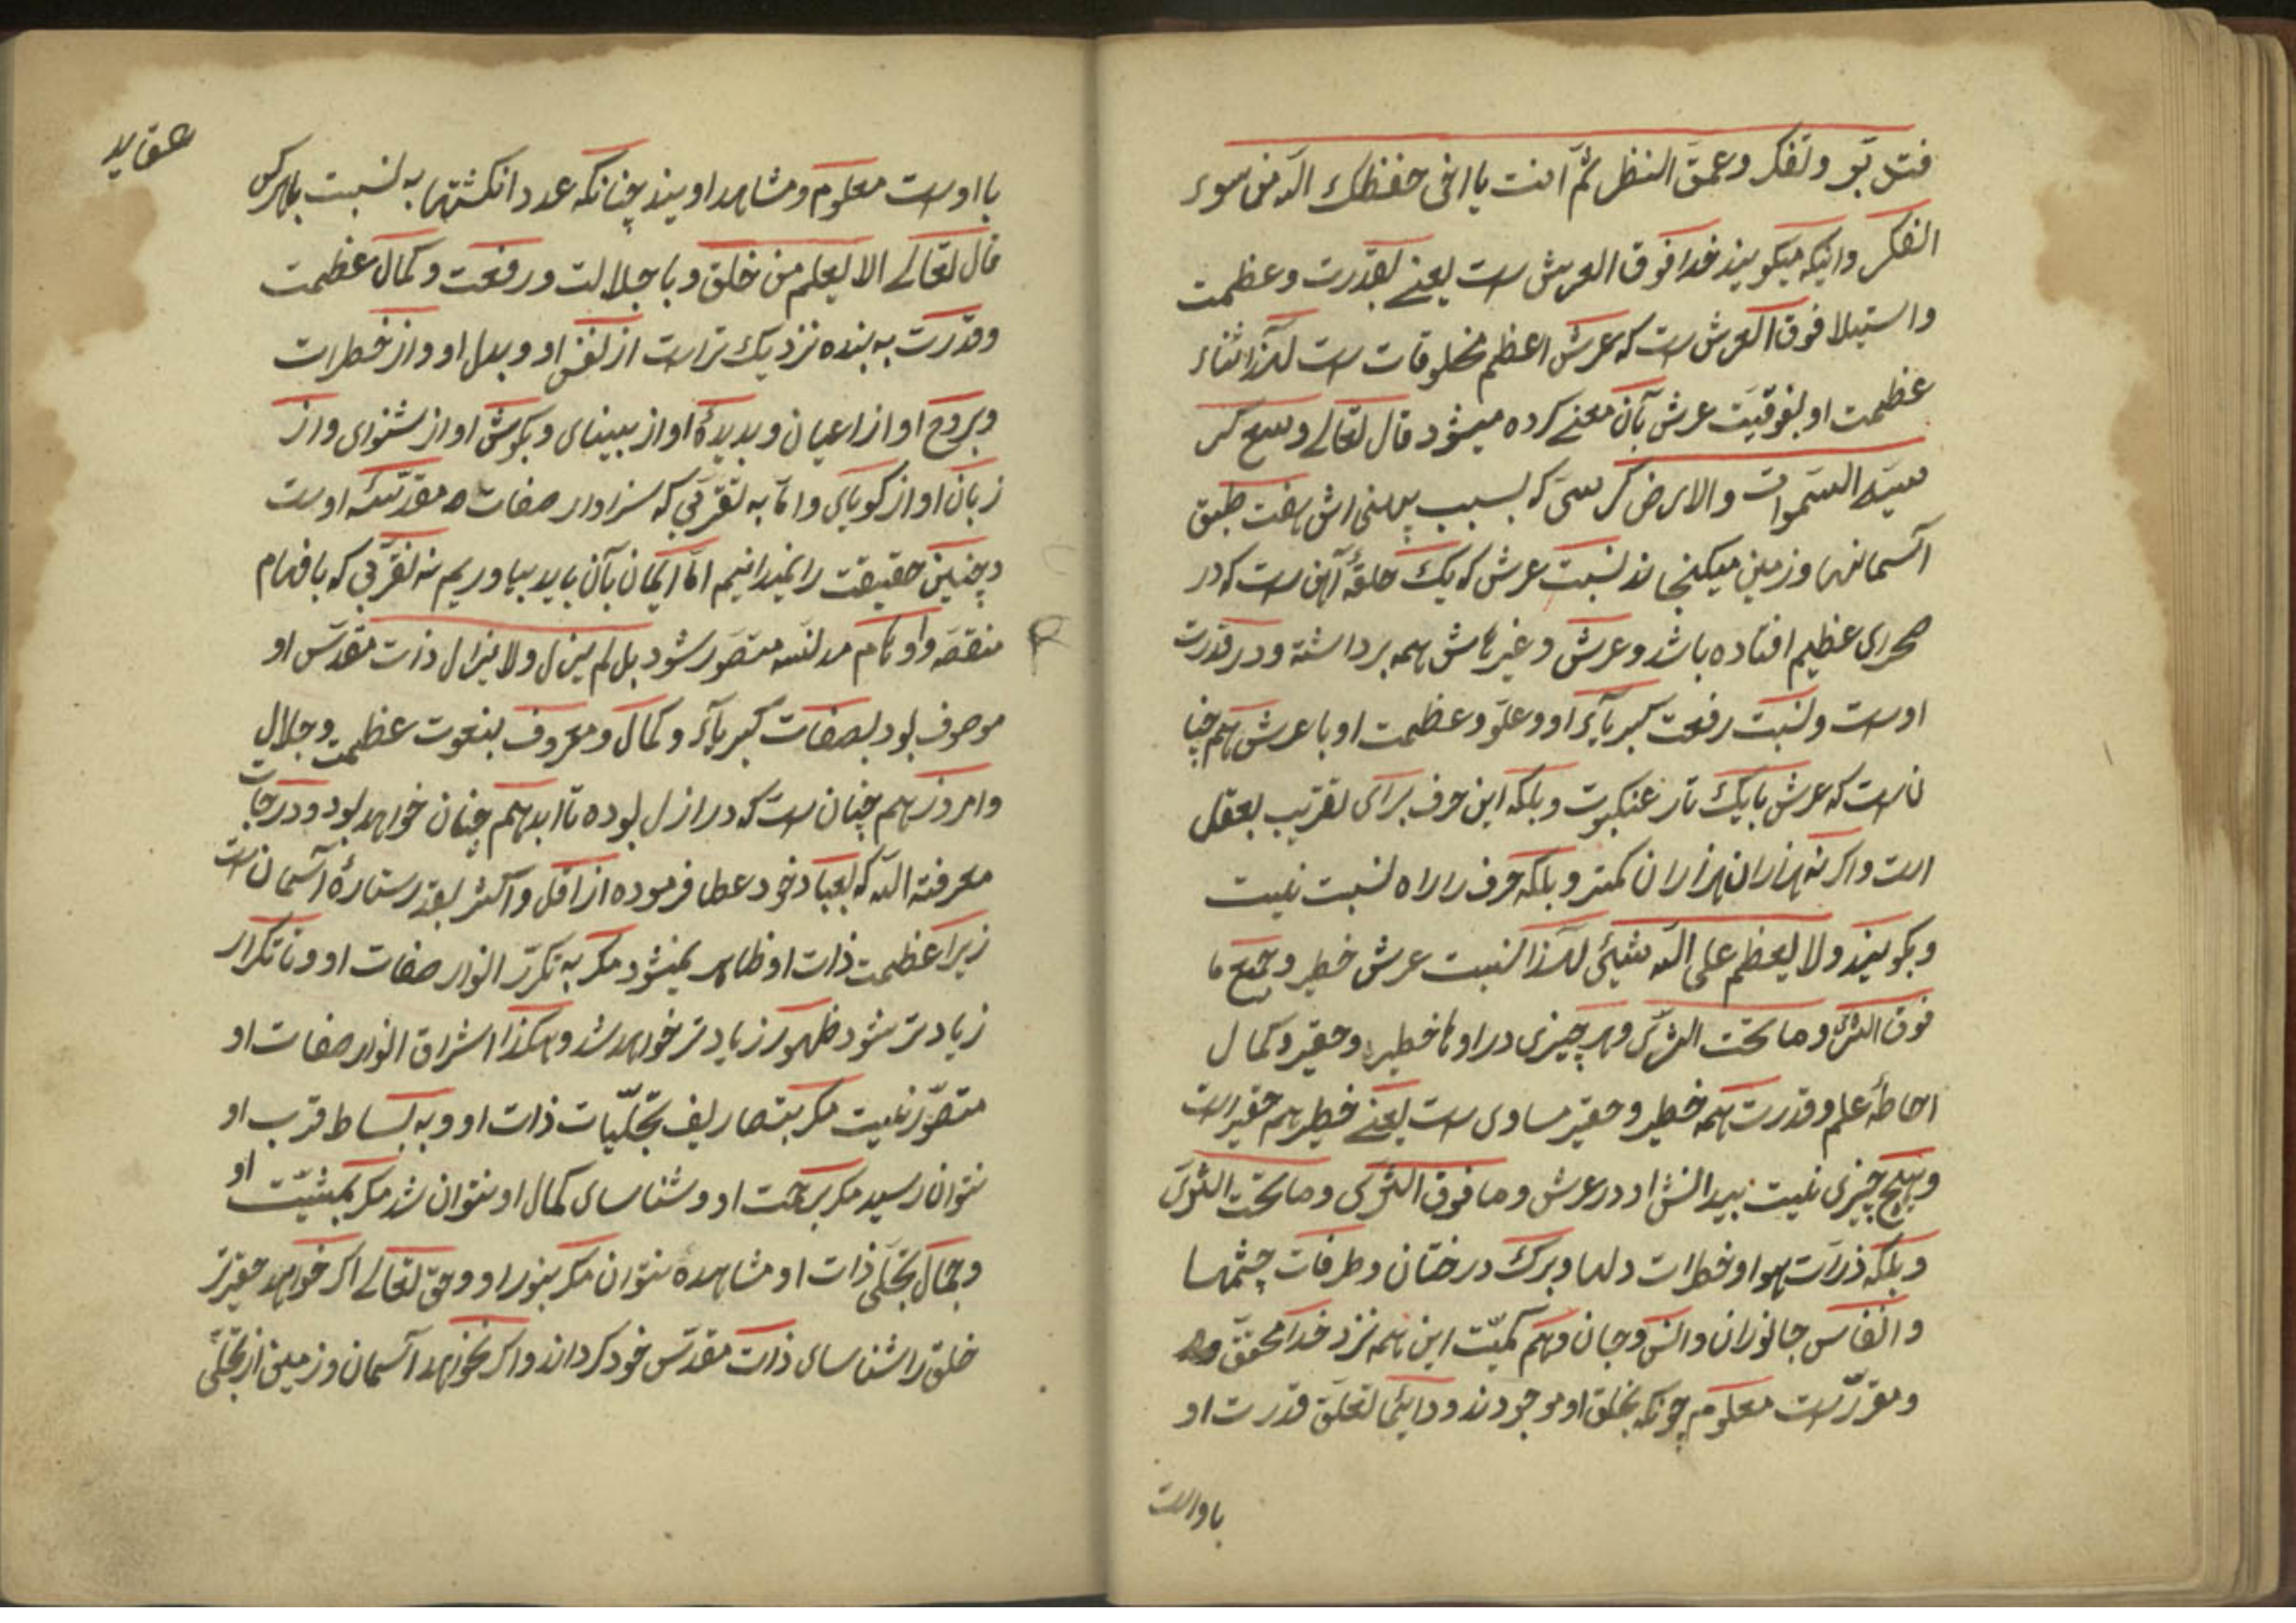 فتدبّر وتفكر وعمّق النظر ثمّ آمنت یا اخی حفظك الله من سوء
الفكر واینکه میکویند خدا فوق العرش است یعنے بقدرت وعظمت
واستیلا فوق العرش است که عرش اعظم مخلوقات است لهذا اثناء
عظمت او بفوقیّت عرش بآن معنے کرده میشود قال تعالے وسع کر
سیّه السّموات والارض کرسیّ که بسبب پهنی اش هفت طبق
آسمانها وزمین میکنجاند نسبت عرش که یك حلقهٔ آهن است که در
صحرای عظیم افتاده باشد وعرش وغیرهاش همه برداشته ودر قدرت
اوست ونسبت رفعت کبریآء او وعلوّ وعظمت او با عرش هم چنا
ن است که عرش با یك تار عنکبوت وبلکه این حرف برای تقریب بعقل
است واکرنه هزاران هزاران کمتر وبلکه حرف را راه نسبت نیست
وبکویند ولا یعظم علی الله شیئی لهذا نسبت عرش خطیر وجمیع ما
فوق العرش وما تحت الثری وهر چیزی در او ها خطیر وحقیر وکمال
احاطهٔ علم وقدرت همه خطیر وحقیر مساوی است یعنے خطیر هم حقیر است
وهیچ چیزی نیست بیدانش او در عرش وما فوق الثری وما تحت الثری
وبلکه ذرّات هوا وخطرات دلها وبرك درختان وطرفات چشمها
وانفاس جانوران وانس وجان وهم کمیّت این همه نزد خدا محقق
ومقرّر است معلوم چونکه بخلق او موجودند ودایمًا تعلّق قدرت او
با اوست
عقاید
با اوست معلوم ومشاهد اویند چنانکه عدد انکشتها به نسبت بهرکس
قال تعالے الا یعلم من خلق وبا جلالت ورفعت وکمال عظمت
وقدرت به بنده نزدیك تر است از نفس او وبدل او واز خطرات
وبروح او از اعیان وبدیدهٔ او از بینای وبکوش او از شنوای واز
زبان او از کویای وامّا به تقرّبی که سزاوار صفات مقدّسهٔ اوست
وچنین حقیقت را نمیدانیم امّا ایمان بآن باید بیاوریم نه تقرّبی که بافهام
منقصه واوهام مدلّسه متصوّر شود بل لم یزل ولا یزال ذات مقدّس او
موصوف بود بصفات کبریآء وکمال ومعروف بنعوت عظمت وجلال
وامروز هم چنان است که در ازل بوده تا ابد هم چنان خواهد بود ودرجات
معرفة الله که بعباد خود عطا فرموده از اقل واکثر بقدر ستارهٔ آسمان است
زیرا عظمت ذات او ظاهر نمیشود مکر به تکرّر انوار صفات او وتا تکرار
زیادتر شود ظهور زیادتر خواهد شد وهکذا اشراق انوار صفات او
متصوّر نیست مکر بتصاریف تجلّیات ذات او وبه بساط قرب او
نتوان رسید مکر برحمت او وشناسای کمال او نتوان شد مکر بمشیّت او
وجمال تجلّی ذات او مشاهدهٔ نتوان مکر بنور او وحق تعالے اکر خواهد حقیرتر
خلق را شناسای ذات مقدّس خود کرداند واکر نخواهد آسمان وزمین از تجلّی